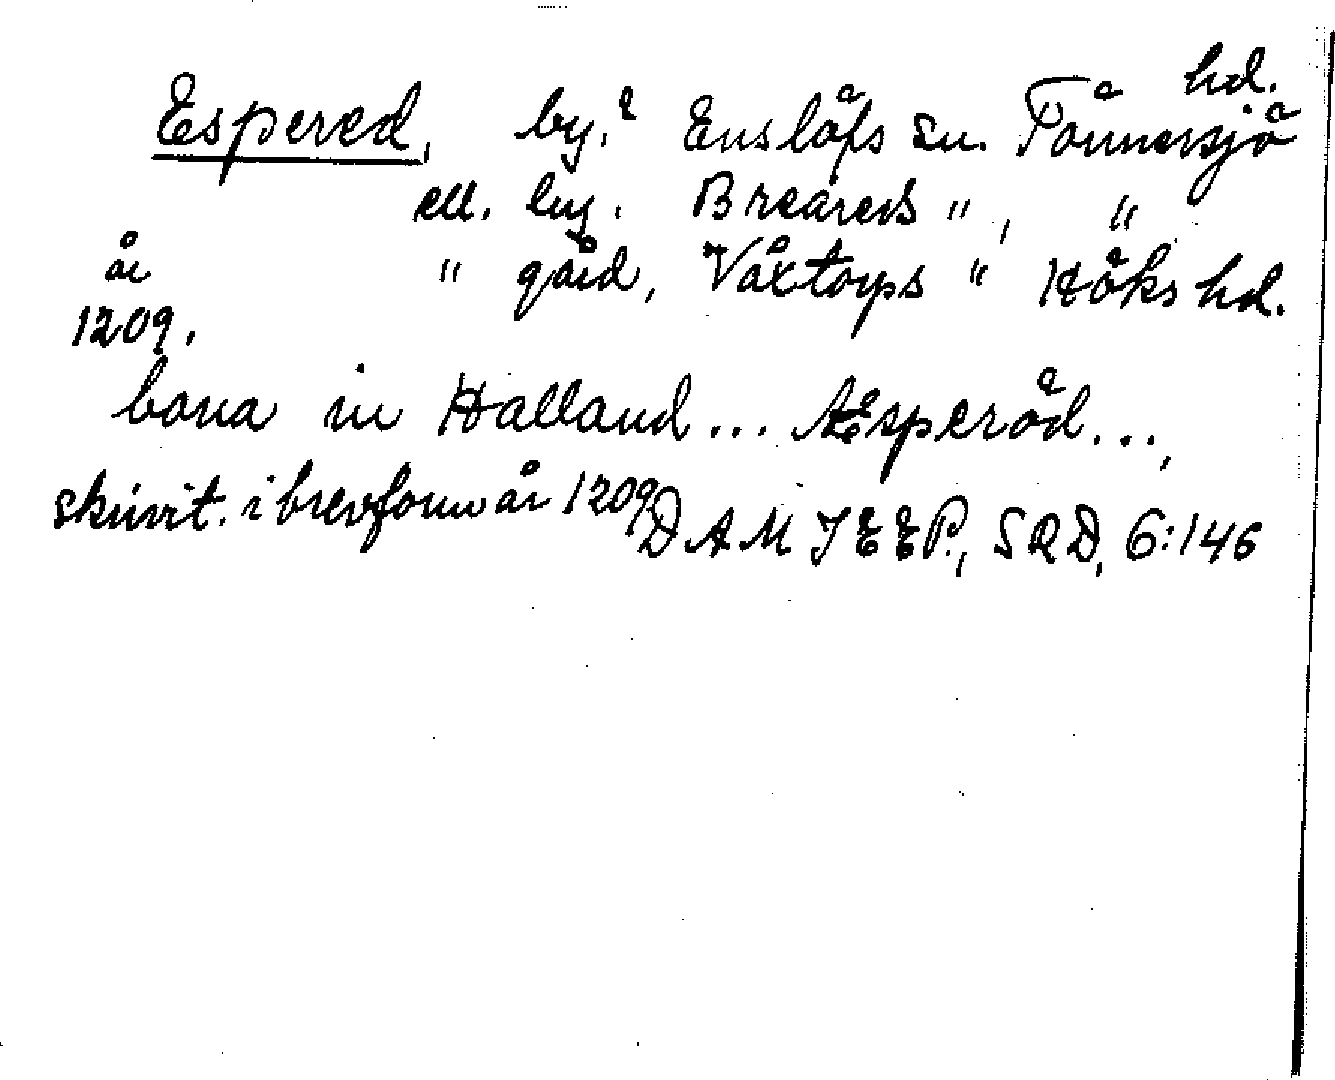 Espered, by.? Enslöfs sn. Tönnersjö hd.
ell. by. Breareds " , "
år " gård, Våxtorps " Höks hd.
1209.
bona in Halland... Æsperöd...,
skrivit. i brevform år 1209 DAM JEEP., SRD, 6:146